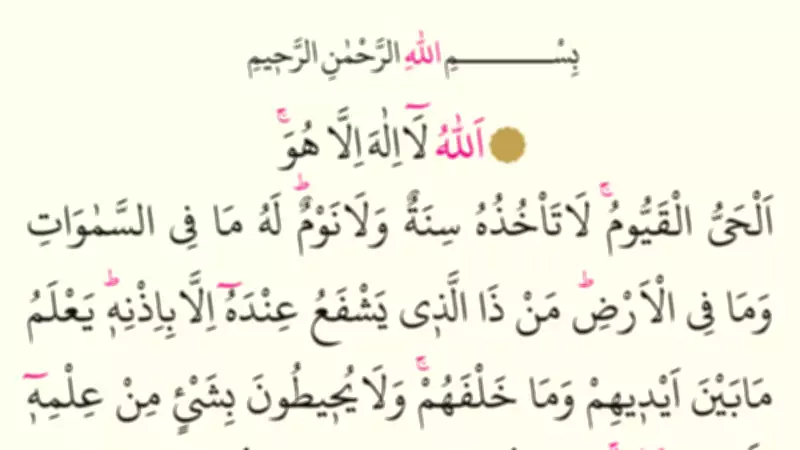 بِسْــــــــــمِ اللّٰهِ الرَّحْمٰنِ الرَّحٖيمِ
اَللّٰهُ لَٓا اِلٰهَ اِلَّا هُوَۚ
اَلْحَىُّ الْقَيُّومُۚ لَا تَاْخُذُهُ سِنَةٌ وَلَا نَوْمٌؕ لَهُ مَا فِى السَّمٰوَاتِ
وَمَا فِى الْاَرْضِؕ مَنْ ذَا الَّذٖى يَشْفَعُ عِنْدَهُٓ اِلَّا بِاِذْنِهٖؕ يَعْلَمُ
مَا بَيْنَ اَيْدٖيهِمْ وَمَا خَلْفَهُمْۚ وَلَا يُحٖيطُونَ بِشَىْءٍ مِنْ عِلْمِهٖٓ